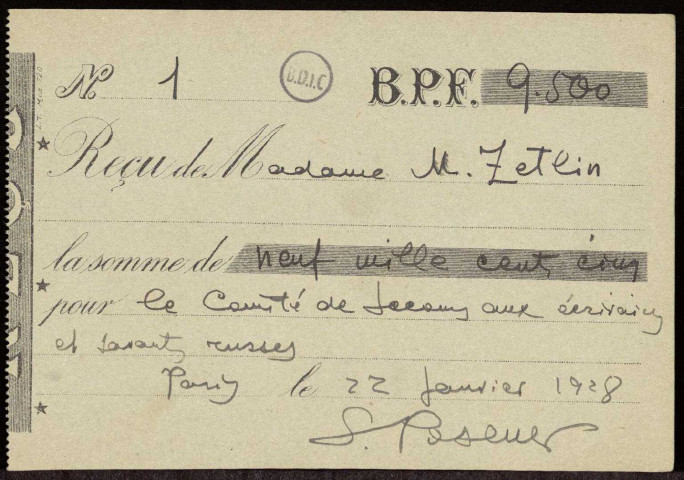 N. 1 B.D.I.C B.P.F. 9.500
Reçu de Madame M. Zetlin
la somme de neuf mille cent cinq
pour le Comité de secours aux écrivains
et savants russes
Paris le 22 janvier 1928
S. Posener